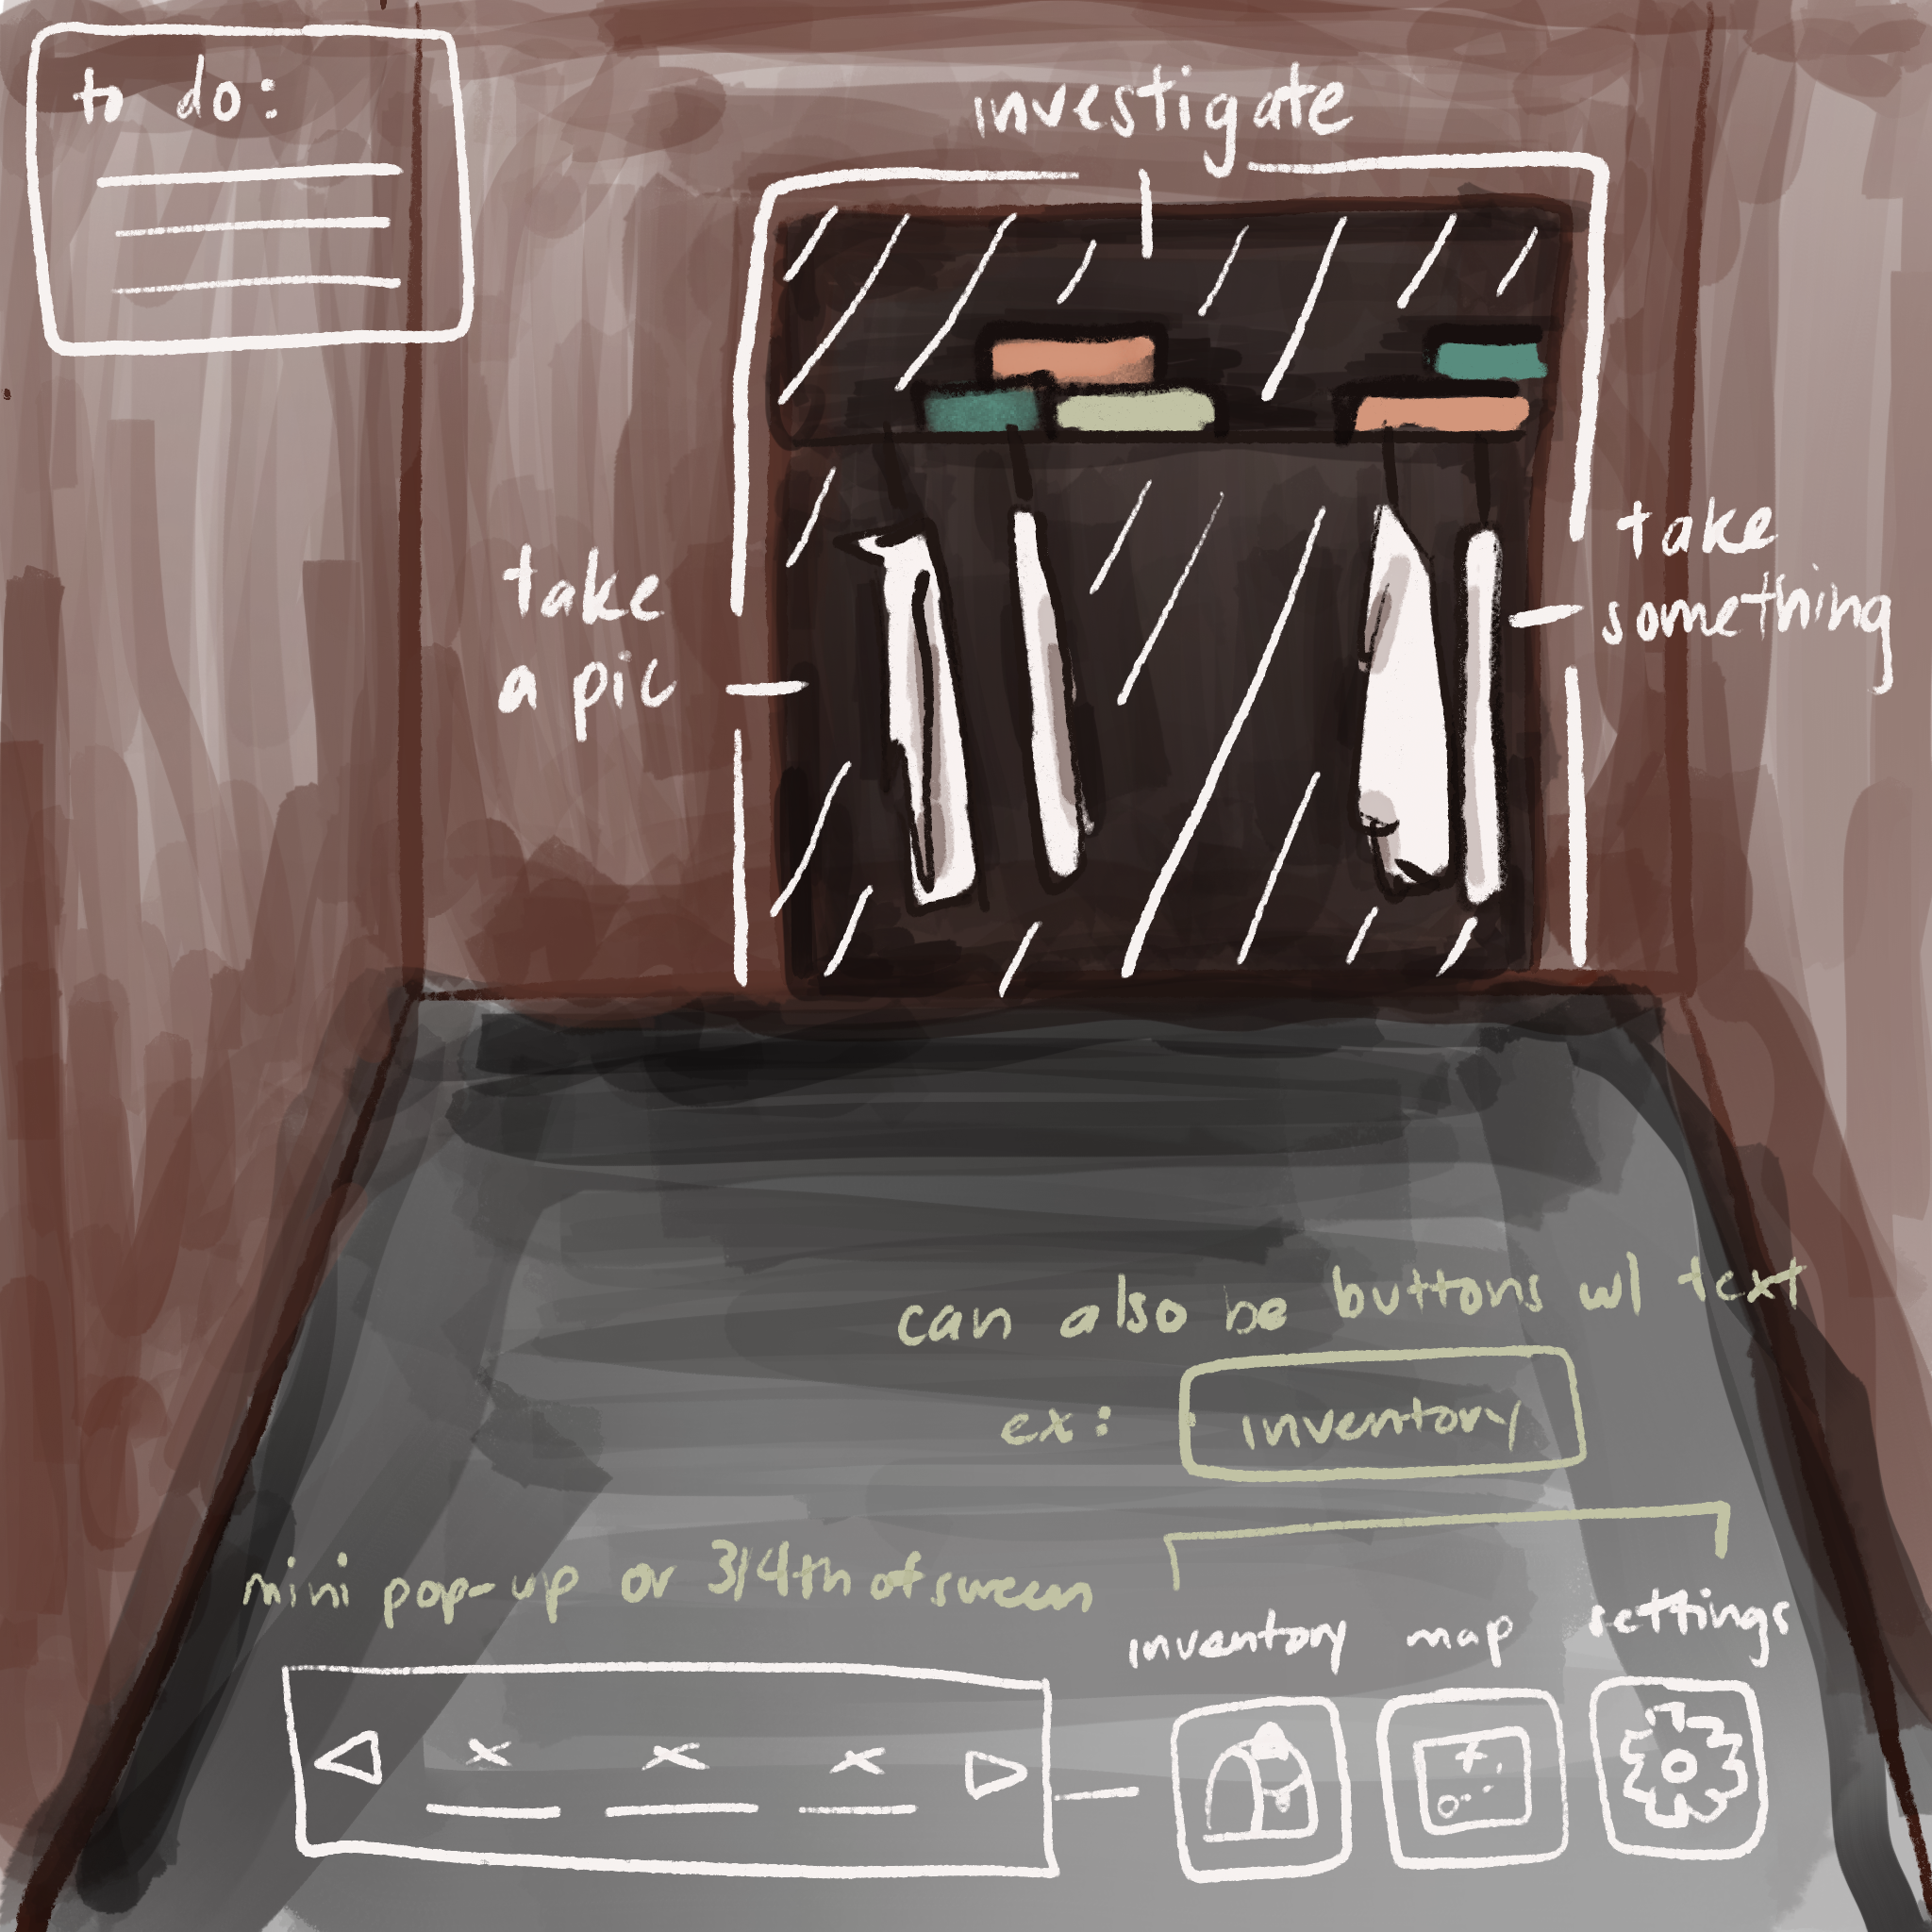 to do:
investigate
take
a pic
take
something
can also be buttons w/ text
ex: inventory
mini pop-up or 3/4th of screen
inventory map settings